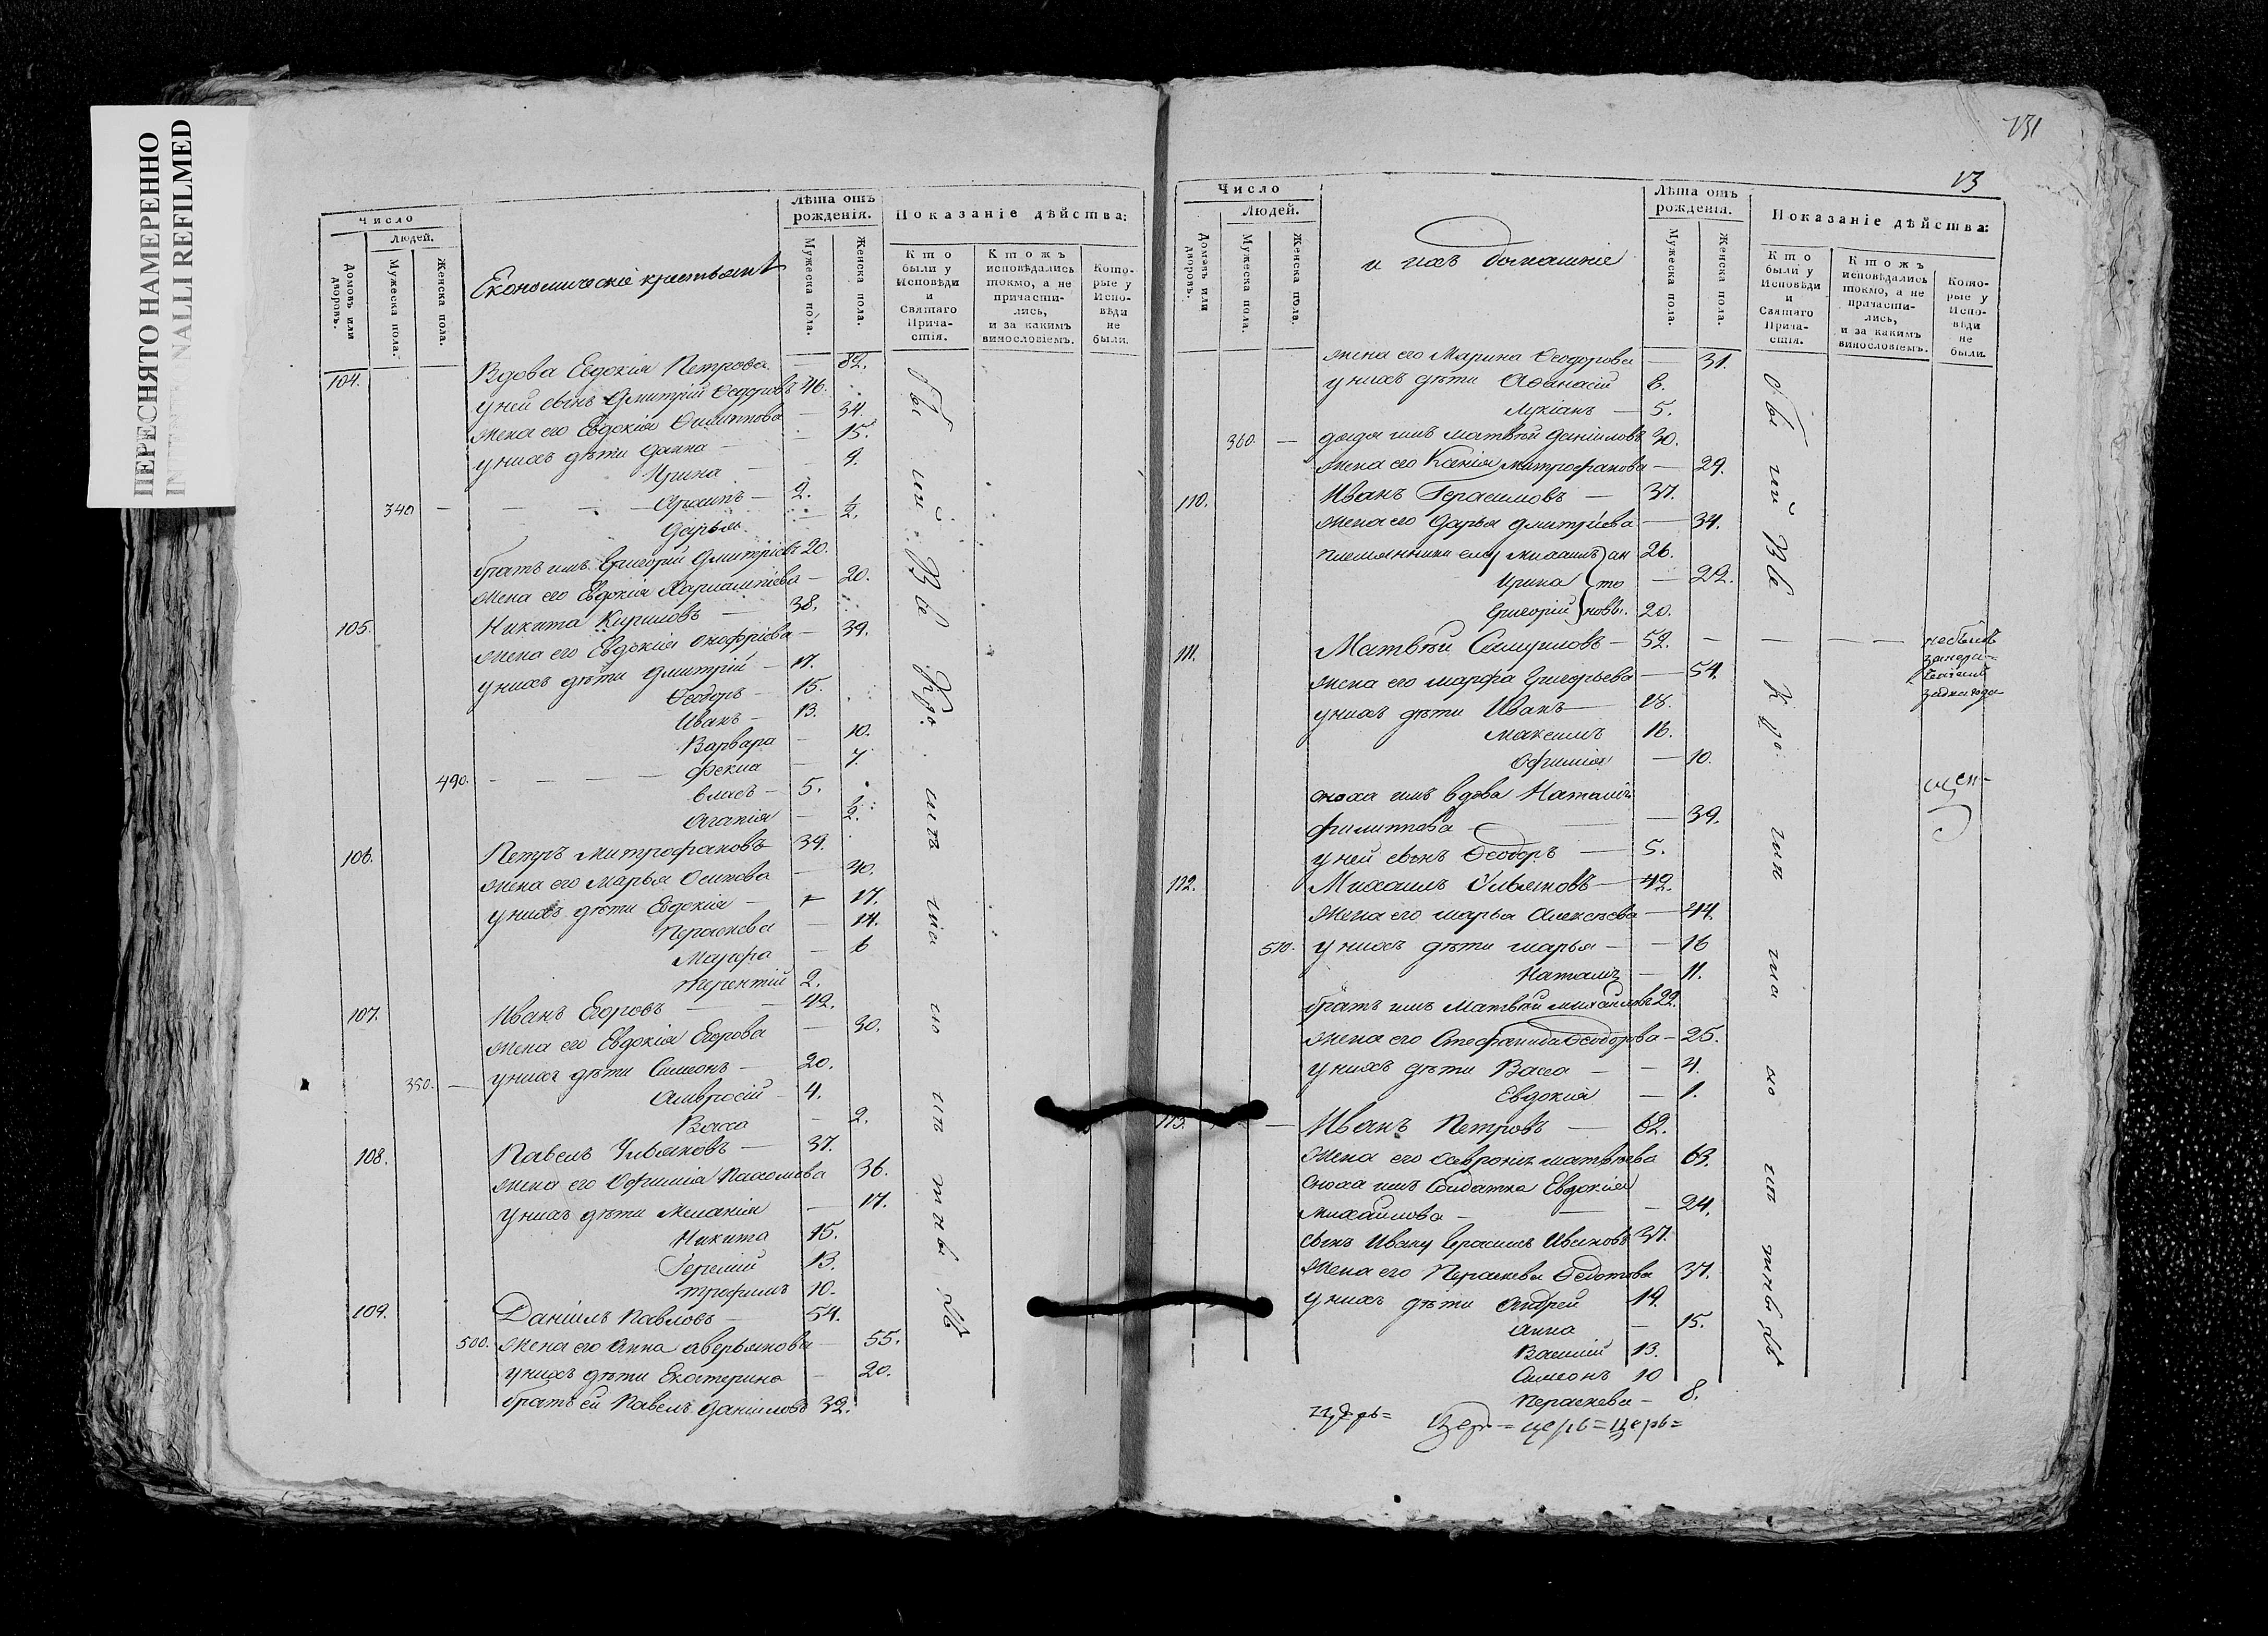 ПЕРЕСНЯТО НАМЕРЕННО
INALLI REFILMED
Число
Людей.
Домовъ или дворовъ.
Мужеска пола.
Женска пола.
Економическіе крестьяне
Лѣта отъ рожденія.
Мужеска пола.
Женска пола.
Показаніе дѣйства:
Кто были у Исповѣди и Святаго Прича-стія.
Ктожъ исповѣдались токмо, а не причасти-лись, и за какимъ винословіемъ.
Кото-рые у Испо-вѣди не были.
104. Вдова Евдокія Петрова — 82.
у ней сынъ Дмитрій Ѳедоровъ 46.
жена его Евдокія Филиппова — 34.
у нихъ дѣти Данна — 15.
Ирина — 9.
340 — Архипъ — 2.
Дарья — ½.
братъ имъ Григорій Дмитріевъ 20.
жена его Евдокія Харлампіева — 20.
105. Никита Кириловъ — 38.
жена его Евдокія Онофріева — 39.
у нихъ дѣти Дмитрій — 17.
Ѳеодоръ — 15.
Иванъ — 13.
Варвара — 10.
490. — Ѳекла — 7.
Власъ — 5.
Агапія — ½.
106. Петръ Митрофановъ 39.
жена его Марья Осипова — 40.
у нихъ дѣти Евдокія — 17.
Параскева — 14.
Марфа — 6
Терентій 2.
107. Иванъ Егоровъ — 42.
жена его Евдокія Егорова — 30.
350. — у нихъ дѣти Симеонъ — 20.
Амвросій — 4.
Васса — 2.
108. Павелъ Ульяновъ — 37.
жена его Ефимія Пахомова 36.
у нихъ дѣти Меланія — 17.
Никита 15.
Герасим 13.
Трофимъ 10.
109. Даніилъ Павловъ — 54.
500. жена его Анна Аверьянова — 55.
у нихъ дѣти Екатерина — 20.
братъ ей Павелъ Даніиловъ 32.
131
13
Число
Людей.
Домовъ или дворовъ.
Мужеска пола.
Женска пола.
и ихъ домашніе
Лѣта отъ рожденія.
Мужеска пола.
Женска пола.
Показаніе дѣйства:
Кто были у Исповѣди и Святаго Прича-стія.
Ктожъ исповѣдались токмо, а не причасти-лись, и за какимъ винословіемъ.
Кото-рые у Испо-вѣди не были.
жена его Марина Ѳеодорова — 31.
у нихъ дѣти Аѳанасій 6.
Лукіанъ — 5.
360. — дядя имъ Матвѣй Даніиловъ 30.
жена его Ксенія Митрофанова — 29.
110. Иванъ Герасимовъ — 37.
жена его Дарья Дмитріева — 34.
племянники ему Михаилъ ан 26.
Ирина то — 22.
Григорій новы. 20.
111. Матвѣй Самуиловъ — 52.
жена его Марфа Григорьева — 54.
у нихъ дѣти Иванъ — 18.
Максимъ 16.
Ефимія — 10.
сноха имъ вдова Наталія
Филиппова — 39.
у ней сынъ Ѳеодоръ — 5.
112. Михаилъ Ульяновъ — 42.
жена его Марья Алексѣева — 44.
510. у нихъ дѣти Марья — 16
Наталія — 11.
братъ имъ Матвѣй Михайловъ 22.
жена его Стефанида Ѳеодорова — 25.
у нихъ дѣти Васса — 4.
Евдокія — 1.
113. — Иванъ Петровъ — 62.
жена его Февронія Матвѣева 63.
сноха имъ Солдатка Евдокія
Михаилова — 24.
сынъ Ивану Герасимъ Ивановъ 37.
жена его Параскева Ѳедотова 37.
у нихъ дѣти Андрей 19.
Анна — 15.
Василій 13.
Симеонъ 10
Параскева — 8.